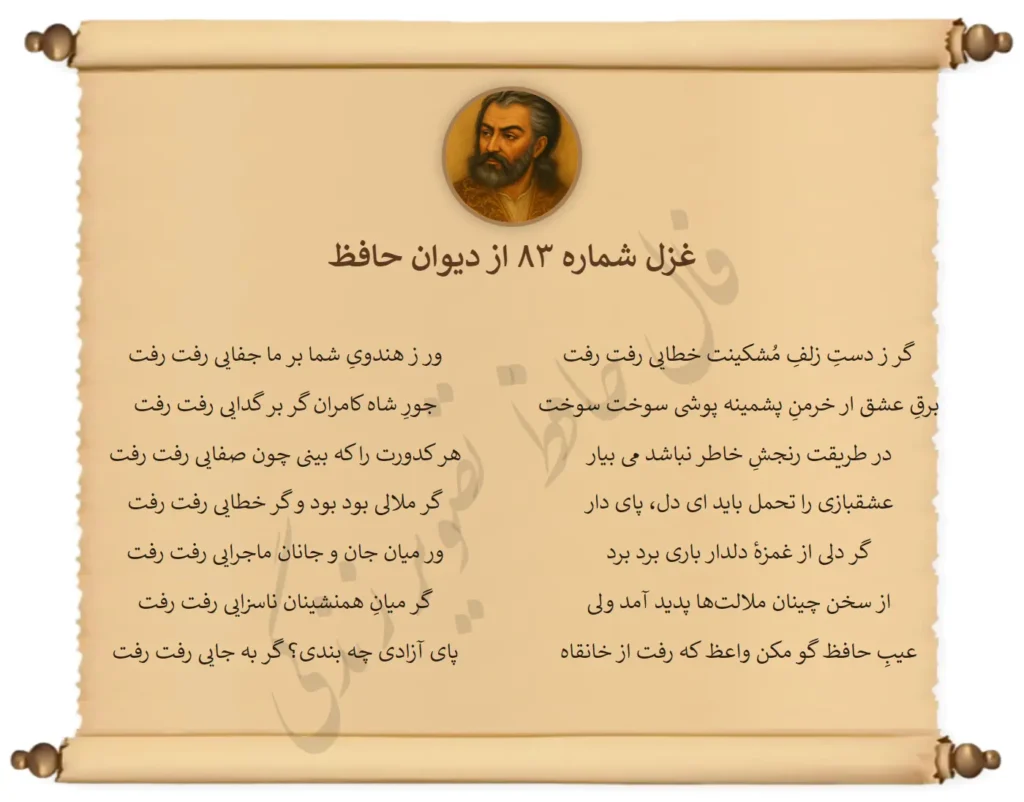 غزل شماره ۸۳ از دیوان حافظ
گر ز دستِ زلفِ مُشکینت خطایی رفت رفت ور ز هندویِ شما بر ما جفایی رفت رفت
برقِ عشق ار خرمنِ پشمینه پوشی سوخت سوخت جورِ شاه کامران گر بر گدایی رفت رفت
در طریقت رنجشِ خاطر نباشد می بیار هر کدورت را که بینی چون صفایی رفت رفت
عشقبازی را تحمل باید ای دل، پای دار گر ملالی بود بود و گر خطایی رفت رفت
گر دلی از غمزهٔ دلدار باری برد برد ور میان جان و جانان ماجرایی رفت رفت
از سخن چینان ملالت‌ها پدید آمد ولی گر میانِ همنشینان ناسزایی رفت رفت
عیبِ حافظ گو مکن واعظ که رفت از خانقاه پای آزادی چه بندی؟ گر به جایی رفت رفت
فال حافظ تصویر زندگی